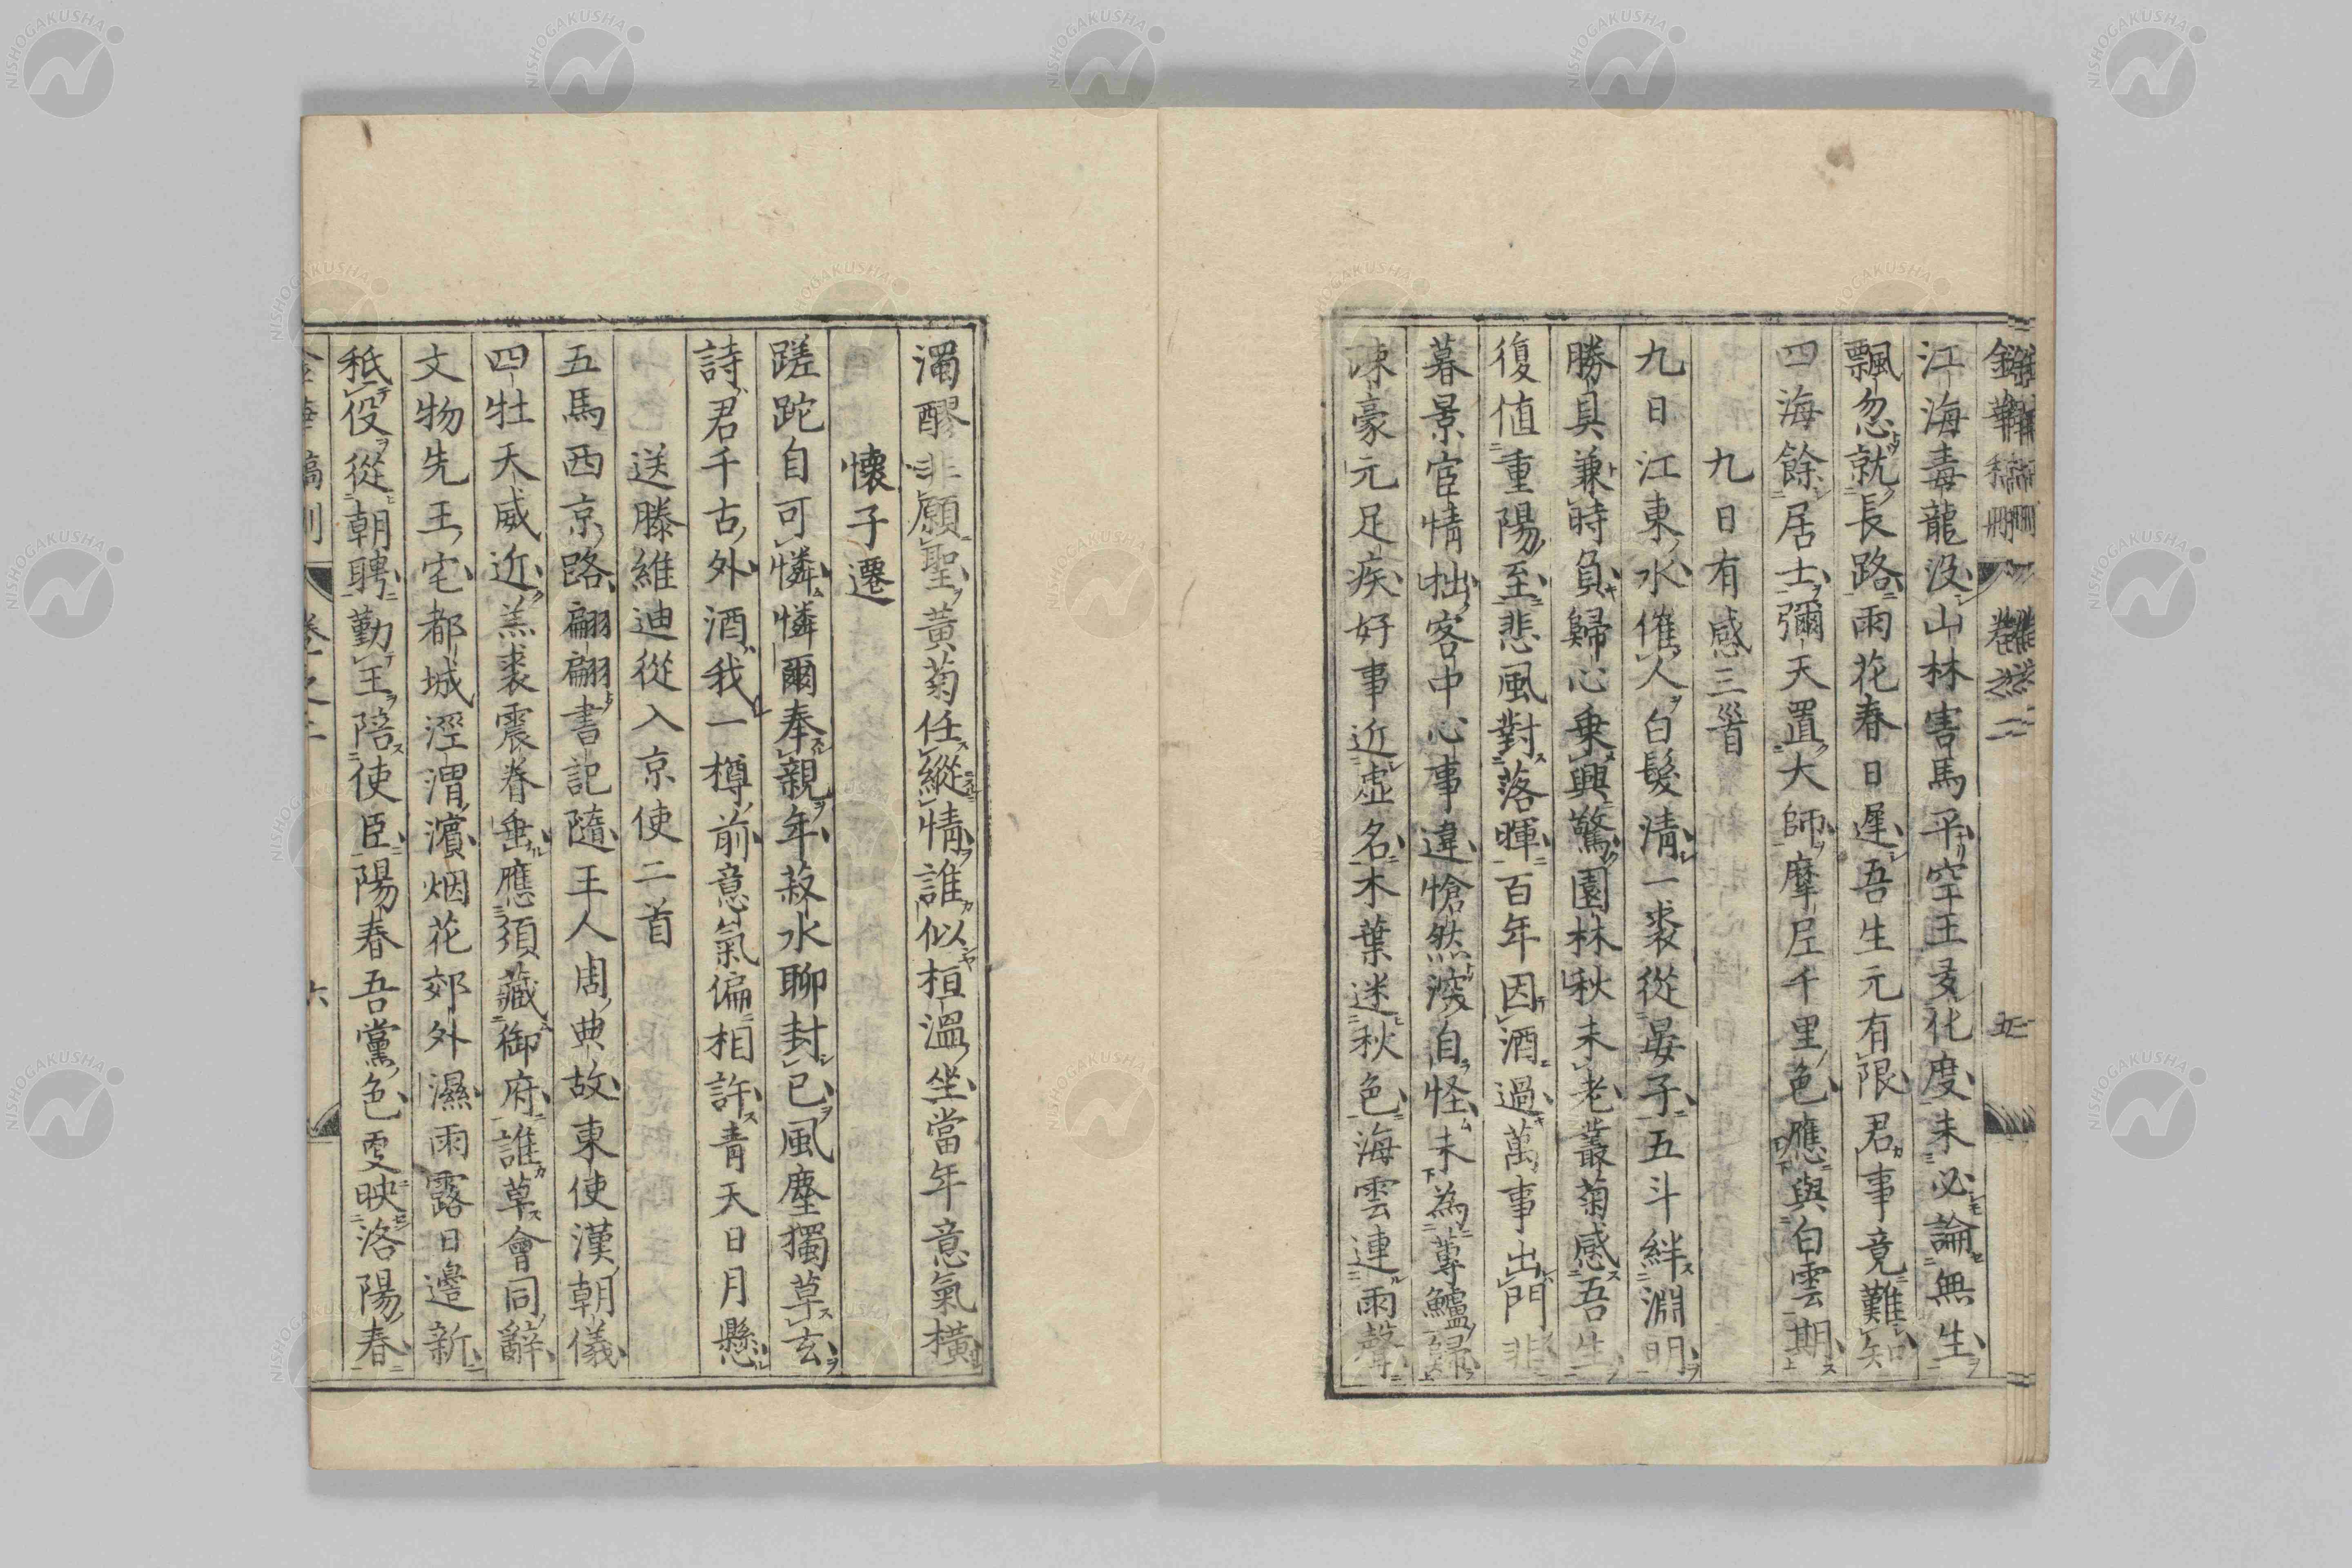 江海毒龍没山林害馬平空王多化度未必論無生
飄忽就長路雨花春日遲吾生元有限君事竟難知
四海餘居士彌天置大師摩尼千里色應與白雲期
九日有感三首
九日江東水催人白髮清一裘從晏子五斗絆淵明
勝具兼時負歸心乗興驚園林秋未老叢菊感吾生
復値重陽至悲風對落暉百年因酒過萬事出門非
暮景宦情拙客中心事違愴然深自怪未為蓴鱸歸
陳豪元足疾好事近虚名木葉迷秋色海雲連雨聲
濁醪非願聖黃菊任縱情誰似桓溫坐當年意氣橫
懷子遷
蹉跎自可憐憐爾奉親年菽水聊封已風塵獨草玄
詩君千古外酒我一樽前意氣偏相許青天日月懸
送滕維迪從入京使二首
五馬西京路翩翩書記隨王人周典故東使漢朝儀
四牡天威近羔裘震眷垂應須藏御府誰草會同辭
文物先王宅都城涇渭濱烟花郊外濕雨露日邊新
秪役從朝聘勤王陪使臣陽春吾黨色更映洛陽春
卷之二
六